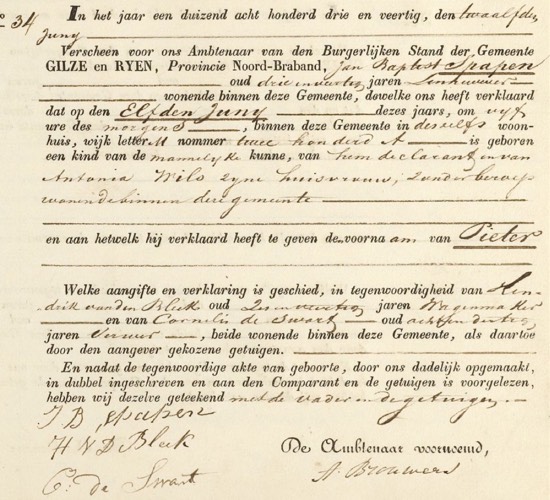 No 34
In het jaar een duizend acht honderd drie en veertig, den twaalfden
Juny
Verscheen voor ons Ambtenaar van den Burgerlijken Stand der Gemeente
GILZE en RYEN, Provincie Noord-Braband, Jan Baptist Spapen
oud drie en veertig jaren
wonende binnen deze Gemeente, dewelke ons heeft verklaard
dat op den Elfden Juny dezes jaars, om vyf
ure des morgens, binnen deze Gemeente in deszelfs woon-
huis, wijk letter M nommer twee honderd A is geboren
een kind van de mannelyke kunne, van hem declarant en van
Antonia Wils zyne huisvrouw, zonder beroep
wonende binnen deze gemeente
en aan hetwelk hij verklaard heeft te geven de voornaam van Pieter
Welke aangifte en verklaring is geschied, in tegenwoordigheid van Hen-
drik van den Bleek oud zes en veertig jaren Wagenmaker
en van Cornelis de Swart oud acht en dertig
jaren Verwer, beide wonende binnen deze Gemeente, als daartoe
door den aangever gekozene getuigen.
En nadat de tegenwoordige akte van geboorte, door ons dadelijk opgemaakt,
in dubbel ingeschreven en aan den Comparant en de getuigen is voorgelezen,
hebben wij dezelve geteekend met de vader en de getuigen.
J B Spapen
H V D Bleek
C: de Swart
De Ambtenaar voornoemd,
A. Brouwers